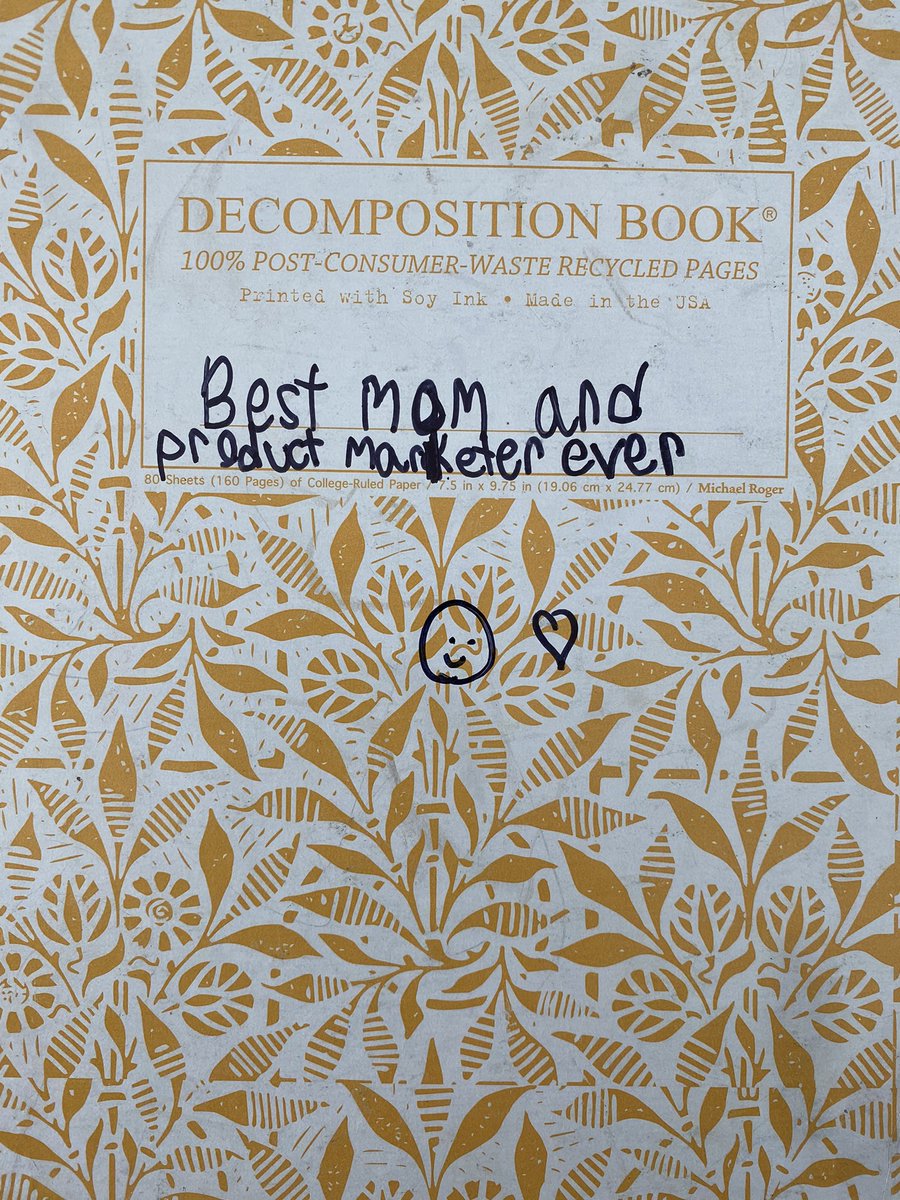 DECOMPOSITION BOOK®
100% POST-CONSUMER-WASTE RECYCLED PAGES
Printed with Soy Ink • Made in the USA
Best mom and
product marketer ever
80 Sheets (160 Pages) of College-Ruled Paper / 7.5 in x 9.75 in (19.06 cm x 24.77 cm) / Michael Roger